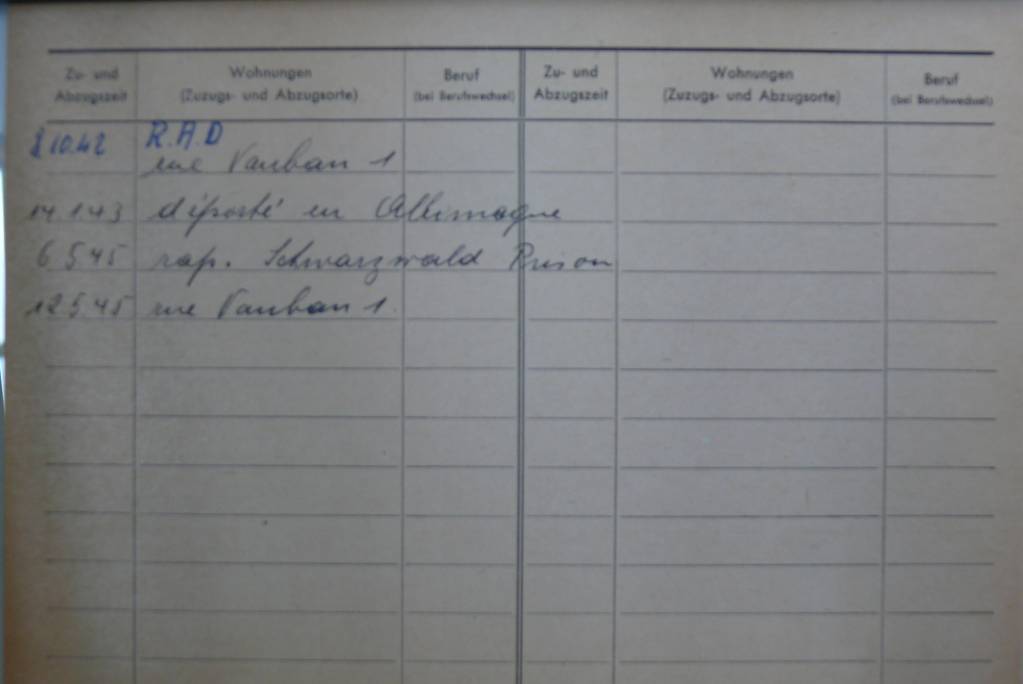 Zu- und Abzugszeit
Wohnungen (Zuzugs- und Abzugsorte)
Beruf (bei Berufswechsel)
Zu- und Abzugszeit
Wohnungen (Zuzugs- und Abzugsorte)
Beruf (bei Berufswechsel)
8 10.42 R.A.D
rue Vauban 1
14 1 43 déporté en Allemagne
6 5 45 rap. Schwarzwald Prison
12 5 45 rue Vauban 1.